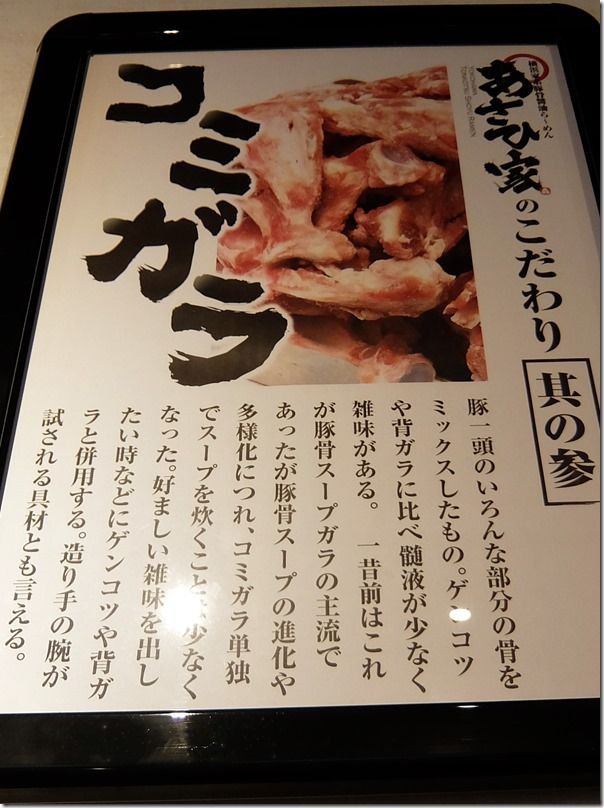 横浜家系豚骨醤油らーめん
あさひ家のこだわり 其の参
YOKOHAMA
TONKOTSU SHOYU RAMEN
コミガラ
豚一頭のいろんな部分の骨を
ミックスしたもの。ゲンコツ
や背ガラに比べ髄液が少なく
雑味がある。 一昔前はこれ
が豚骨スープガラの主流で
あったが豚骨スープの進化や
多様化につれ、コミガラ単独
でスープを炊くこと 少なく
なった。好ましい雑味を出し
たい時などにゲンコツや背ガ
ラと併用する。造り手の腕が
試される具材とも言える。